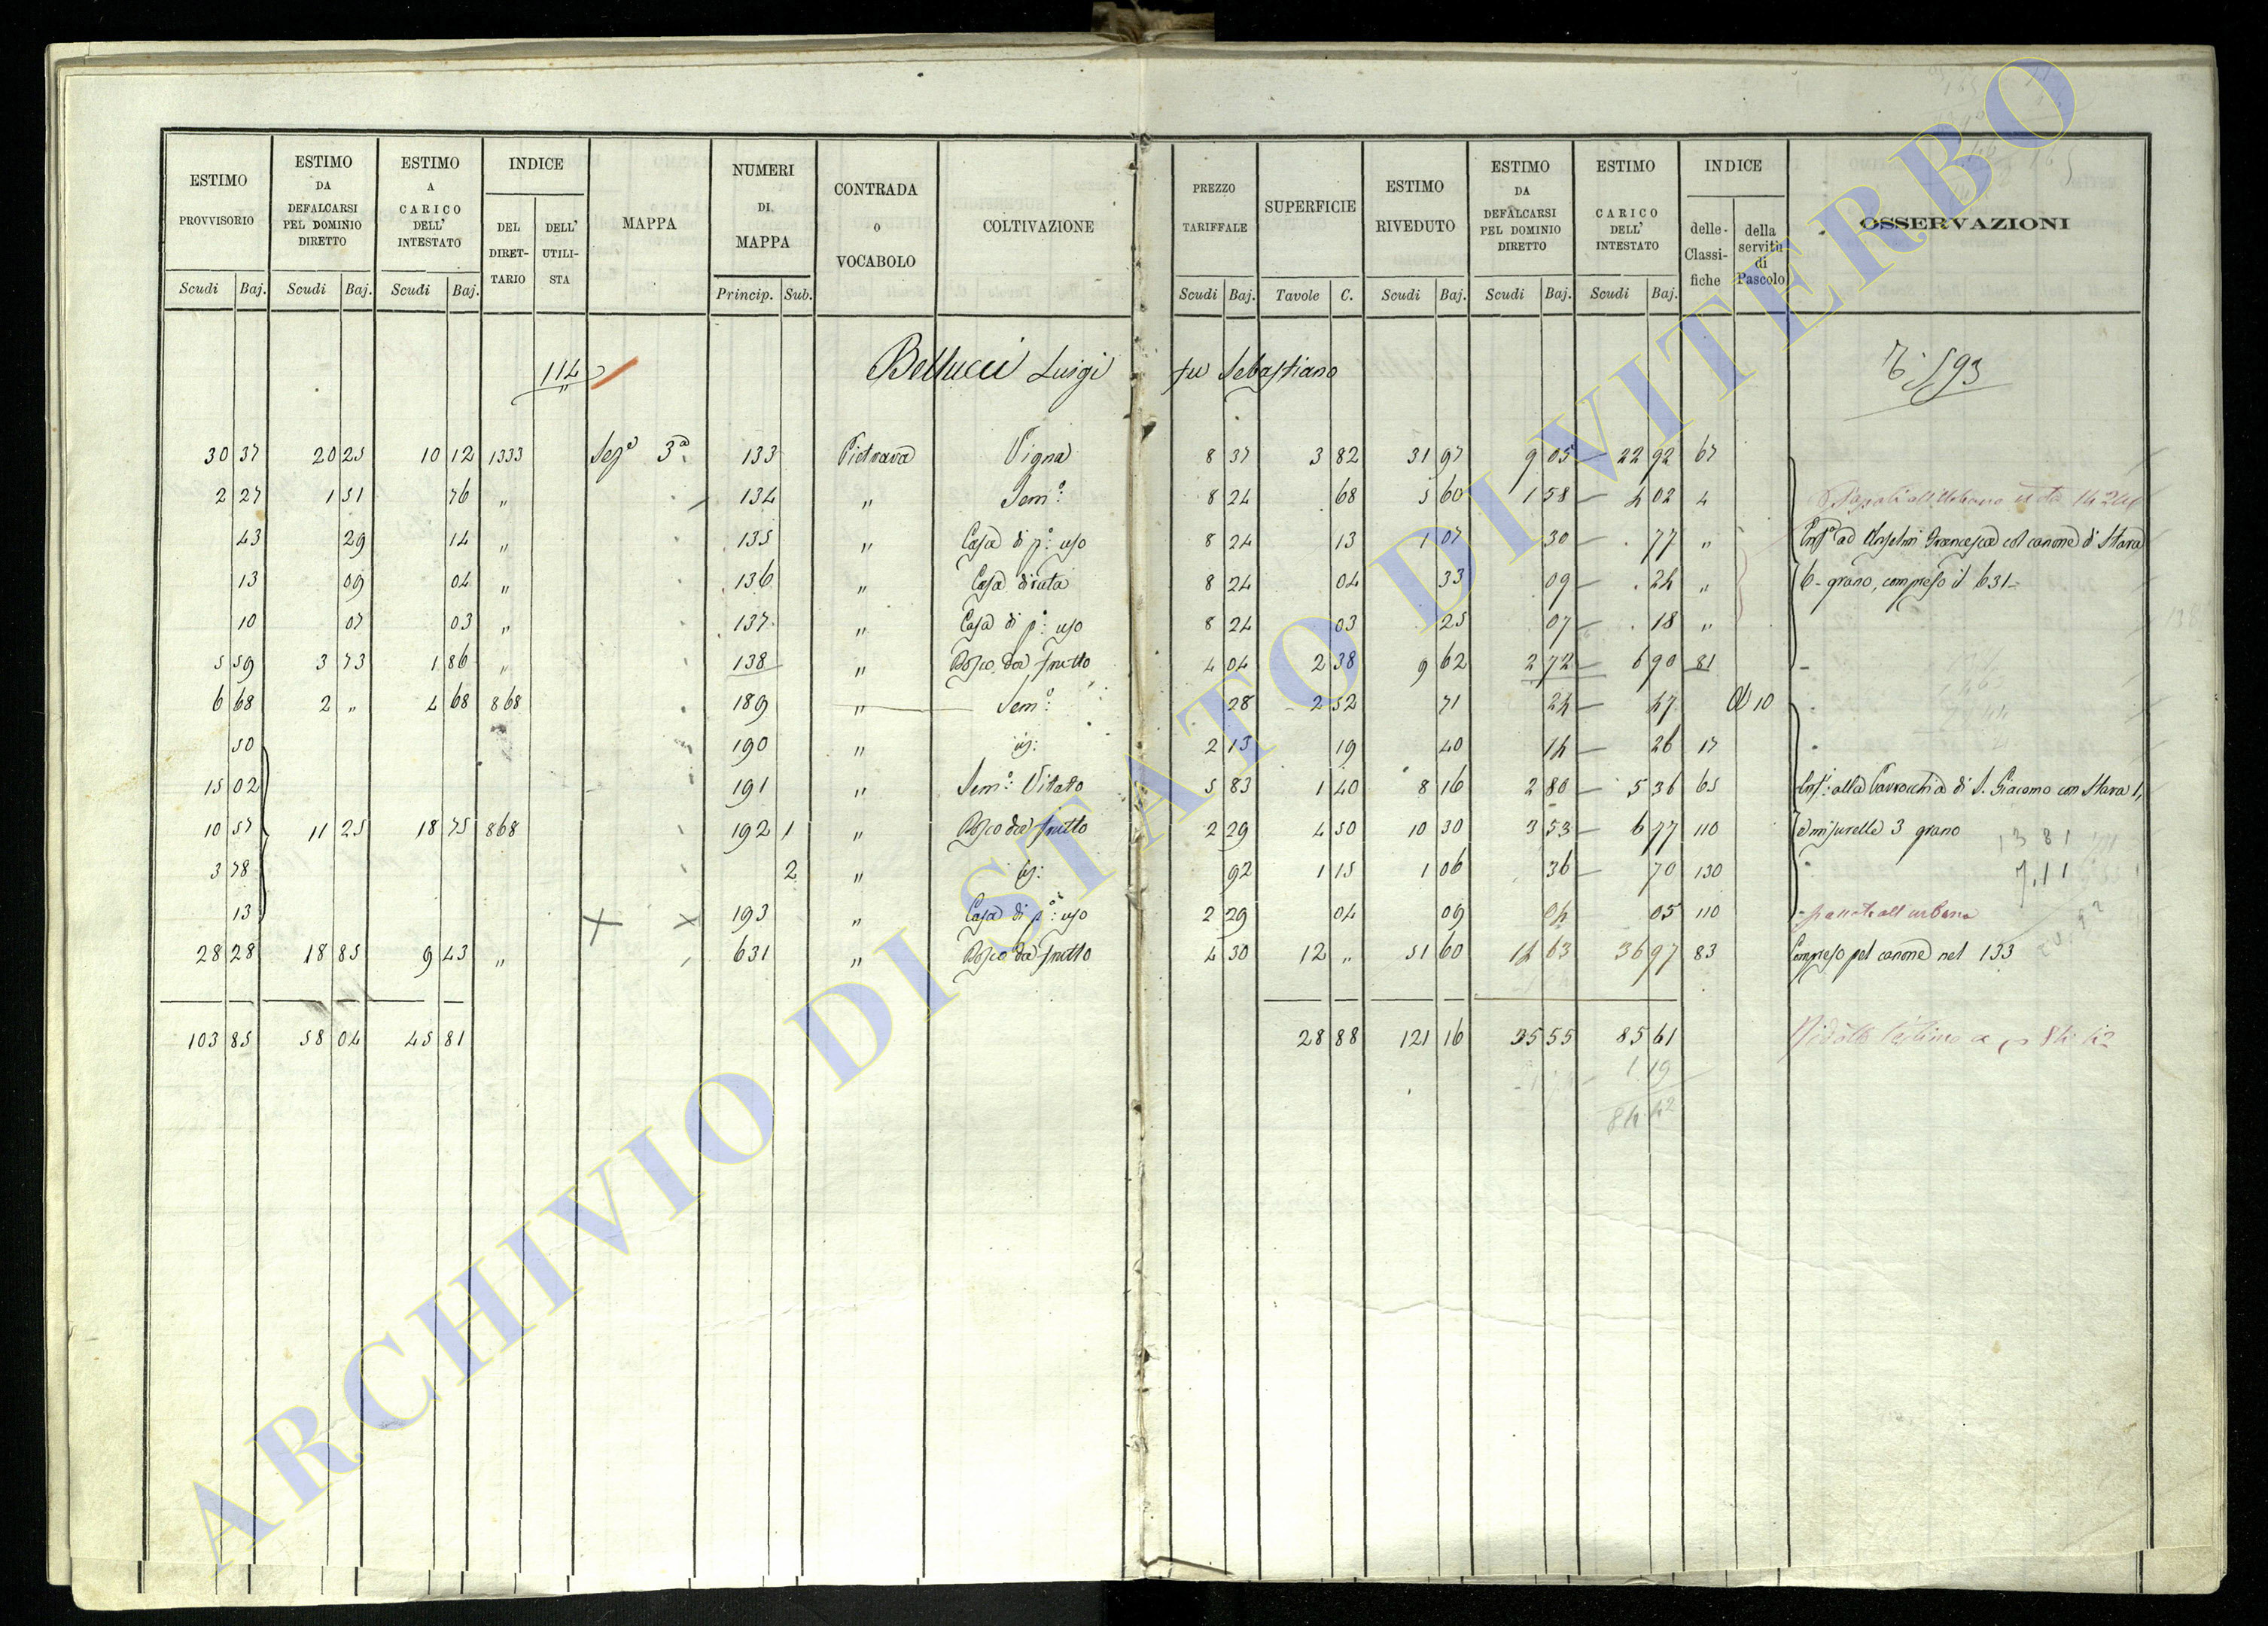 ESTIMO PROVVISORIO Scudi Baj. ESTIMO DA DEFALCARSI PEL DOMINIO DIRETTO Scudi Baj. ESTIMO A CARICO DELL' INTESTATO Scudi Baj. INDICE DEL DIRETTARIO DELL' UTILISTA MAPPA NUMERI DI MAPPA Princip. Sub. CONTRADA O VOCABOLO COLTIVAZIONE PREZZO TARIFFALE Scudi Baj. SUPERFICIE Tavole C. ESTIMO RIVEDUTO Scudi Baj. ESTIMO DA DEFALCARSI PEL DOMINIO DIRETTO Scudi Baj. ESTIMO A CARICO DELL' INTESTATO Scudi Baj. INDICE delle Classifiche della servitù di Pascolo OSSERVAZIONI
114 Bellucci Luigi fu Sebastiano 593
30 37 20 25 10 12 1333 Sez.e 3a 133 Pietrara Vigna 8 37 3 82 31 97 9 05 22 92 67
2 27 1 51 76 " 134 " Sem.o 8 24 68 5 60 1 58 4 02 4
43 29 14 " 135 " Casa di p.o uso 8 24 13 1 07 30 77 " Enf.a ad Anselmi Francesca col canone di Stara
13 09 04 " 136 " Casa dirata 8 24 04 33 09 24 " 6 grano, compreso il 631
10 07 03 " 137 " Casa di p.o uso 8 24 03 25 07 18 "
5 59 3 73 1 86 " 138 " Bosco da frutto 4 04 2 38 9 62 2 72 6 90 81
6 68 2 " 4 68 868 189 " Sem.o 28 2 52 71 24 47 10
50 190 " id: 2 13 19 40 14 26 17
15 02 191 " Sem.o Vitato 5 83 1 40 8 16 2 80 5 36 65 Enf.a alla Parrocchia di S. Giacomo con Stara 1,
10 57 11 25 18 75 868 192 1 " Bosco da frutto 2 29 4 50 10 30 3 53 6 77 110 e misurelle 3 grano
1381
3 78 2 " id: 92 1 15 1 06 36 70 130 7.11
13 193 " Casa di p.o uso 2 29 04 09 04 05 110 passato all urbano
28 28 18 85 9 43 " 631 " Bosco da frutto 4 30 12 " 51 60 14 63 36 97 83 Compreso pel canone nel 133
103 85 58 04 45 81 28 88 121 16 35 55 85 61 Ridotto l'estimo a 84.42
1.19
84 42
ARCHIVIO DI STATO DI VITERBO